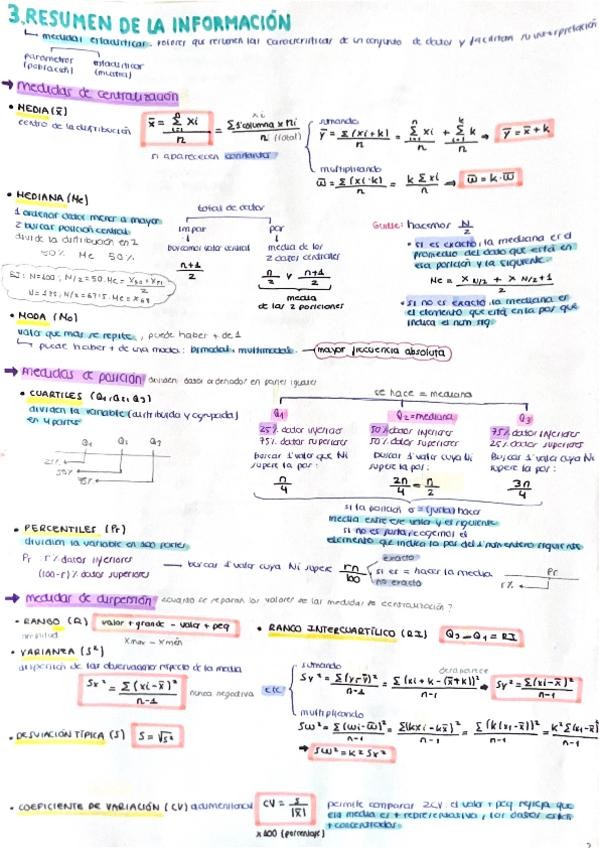 3. RESUMEN DE LA INFORMACIÓN
medidas estadísticas. valores que resumen las características de un conjunto de datos y facilitan su interpretación
parámetros (población)
estadísticas (muestra)
→ medidas de centralización
• MEDIA (x̄)
centro de la distribución
x̄ = Σ xi / n = Σ 1ªcolumna x ni / n (total)
n aparecen constantes
sumando
ȳ = Σ(xi+k) / n = Σ xi / n + Σ k / n ⇒ ȳ = x̄ + k
multiplicando
w̄ = Σ(xi·k) / n = k Σ xi / n ⇒ w̄ = k·x̄
• MEDIANA (Me)
1 ordenar datos menor a mayor
2 buscar posición central
divide la distribución en 2
50% Me 50%
EJ: N=100; N/2=50. Me = x50 + x51 / 2
N=135; N/2=67'5. Me = x68
total de datos
impar
buscamos valor central
n+1 / 2
par
media de los 2 datos centrales
n / 2 y n+1 / 2
media de las 2 posiciones
hacemos N / 2
• si es exacto, la mediana es el promedio del dato que está en esa posición y la siguiente.
Me = x N/2 + x N/2+1 / 2
• si no es exacto, la mediana es el elemento que está en la pos que indica el num sig.
• MODA (Mo)
valor que más se repite, puede haber + de 1
puede haber + de una moda: bimodal, multimodal.
mayor frecuencia absoluta
→ medidas de posición dividen datos ordenados en partes iguales
• CUARTILES (Q1, Q2, Q3)
dividen la variable (distribuida y agrupada) en 4 partes
Q1 Q2 Q3
25%
50%
75%
se hace = mediana
Q1
25% datos inferiores
75% datos superiores
buscar 1º valor que Ni supere la pos:
n / 4
Q2 = mediana
50% datos inferiores
50% datos superiores
buscar 1º valor cuya Ni supere la pos:
2n / 4 = n / 2
Q3
75% datos inferiores
25% datos superiores
Buscar 1º valor cuya Ni supere la pos:
3n / 4
si la posición = (justa) hacer media entre ese valor y el siguiente
si no es justa, cogemos el elemento que indica la pos del 1º num entero siguiente
• PERCENTILES (Pr)
dividen la variable en 100 partes
Pr : r% datos inferiores
(100-r)% datos superiores
buscar 1º valor cuya Ni supere rn / 100
exacto
si es = hacer la media
no exacto
Pr
r%
→ medidas de dispersión ¿cuánto se separan los valores de las medidas de centralización?
• RANGO (R) valor + grande - valor + peq
amplitud
xmax - xmin
• RANGO INTERCUARTÍLICO (RI) Q3 - Q1 = RI
• VARIANZA (S²)
dispersión de las observaciones respecto de la media
Sx² = Σ(xi-x̄)² / n-1
nunca negativa
sumando
desaparece
Sy² = Σ(yi-ȳ)² / n-1 = Σ(xi+k-(x̄+k))² / n-1 ⇒ Sy² = Σ(xi-x̄)² / n-1
multiplicando
Sw² = Σ(wi-w̄)² / n-1 = Σ(kxi-kx̄)² / n-1 = Σ(k(xi-x̄))² / n-1 = k²Σ(xi-x̄)² / n-1
⇒ Sw² = k²Sx²
• DESVIACIÓN TÍPICA (S) S = √S²
• COEFICIENTE DE VARIACIÓN (CV) adimensional
CV = S / |x̄|
x100 (porcentaje)
permite comparar 2CV. el valor + peq refleja que la media es + representativa, los datos están + concentrados.